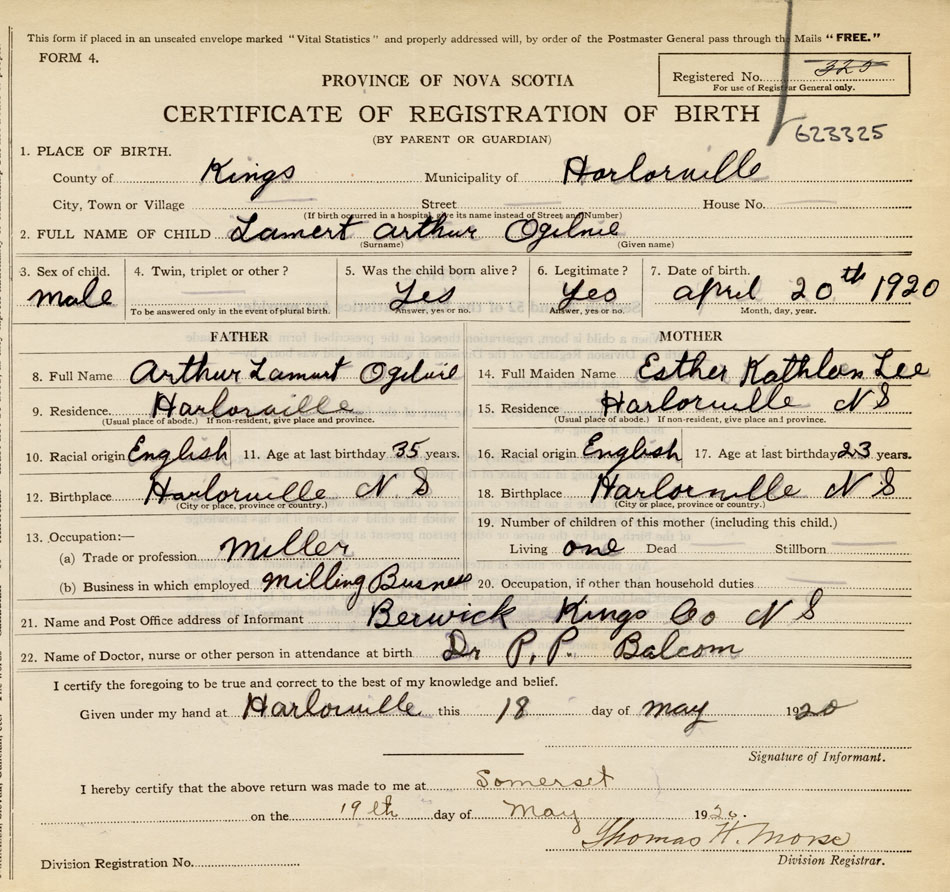 This form if placed in an unsealed envelope marked "Vital Statistics" and properly addressed will, by order of the Postmaster General pass through the Mails "FREE."
FORM 4.
Registered No. 325
For use of Registrar General only.
PROVINCE OF NOVA SCOTIA
CERTIFICATE OF REGISTRATION OF BIRTH
(BY PARENT OR GUARDIAN)
623325
1. PLACE OF BIRTH.
County of Kings Municipality of Harlorville
City, Town or Village Street House No.
(If birth occurred in a hospital, give its name instead of Street and Number)
2. FULL NAME OF CHILD Lamert arthur Ogilvie
(Surname) (Given name)
3. Sex of child. 4. Twin, triplet or other? 5. Was the child born alive? 6. Legitimate? 7. Date of birth.
male Yes Yes april 20th 1920
To be answered only in the event of plural birth. Answer, yes or no. Answer, yes or no. Month, day, year.
FATHER MOTHER
8. Full Name Arthur Lamert Ogilvie 14. Full Maiden Name Esther Kathleen Lee
9. Residence Harlorville 15. Residence Harlorville N S
(Usual place of abode.) If non-resident, give place and province. (Usual place of abode.) If non-resident, give place and province.
10. Racial origin English 11. Age at last birthday 35 years. 16. Racial origin English 17. Age at last birthday 23 years.
12. Birthplace Harlorville N. S 18. Birthplace Harlorville N S
(City or place, province or country.) (City or place, province or country.)
13. Occupation:— 19. Number of children of this mother (including this child.)
(a) Trade or profession miller Living one Dead Stillborn
(b) Business in which employed Milling Busness 20. Occupation, if other than household duties
21. Name and Post Office address of Informant Berwick Kings Co N S
22. Name of Doctor, nurse or other person in attendance at birth Dr P. P. Balcom
I certify the foregoing to be true and correct to the best of my knowledge and belief.
Given under my hand at Harlorville this 18 day of may 1920
Signature of Informant.
I hereby certify that the above return was made to me at Somerset
on the 19th day of May 1920.
Thomas H. Morse
Division Registration No. Division Registrar.